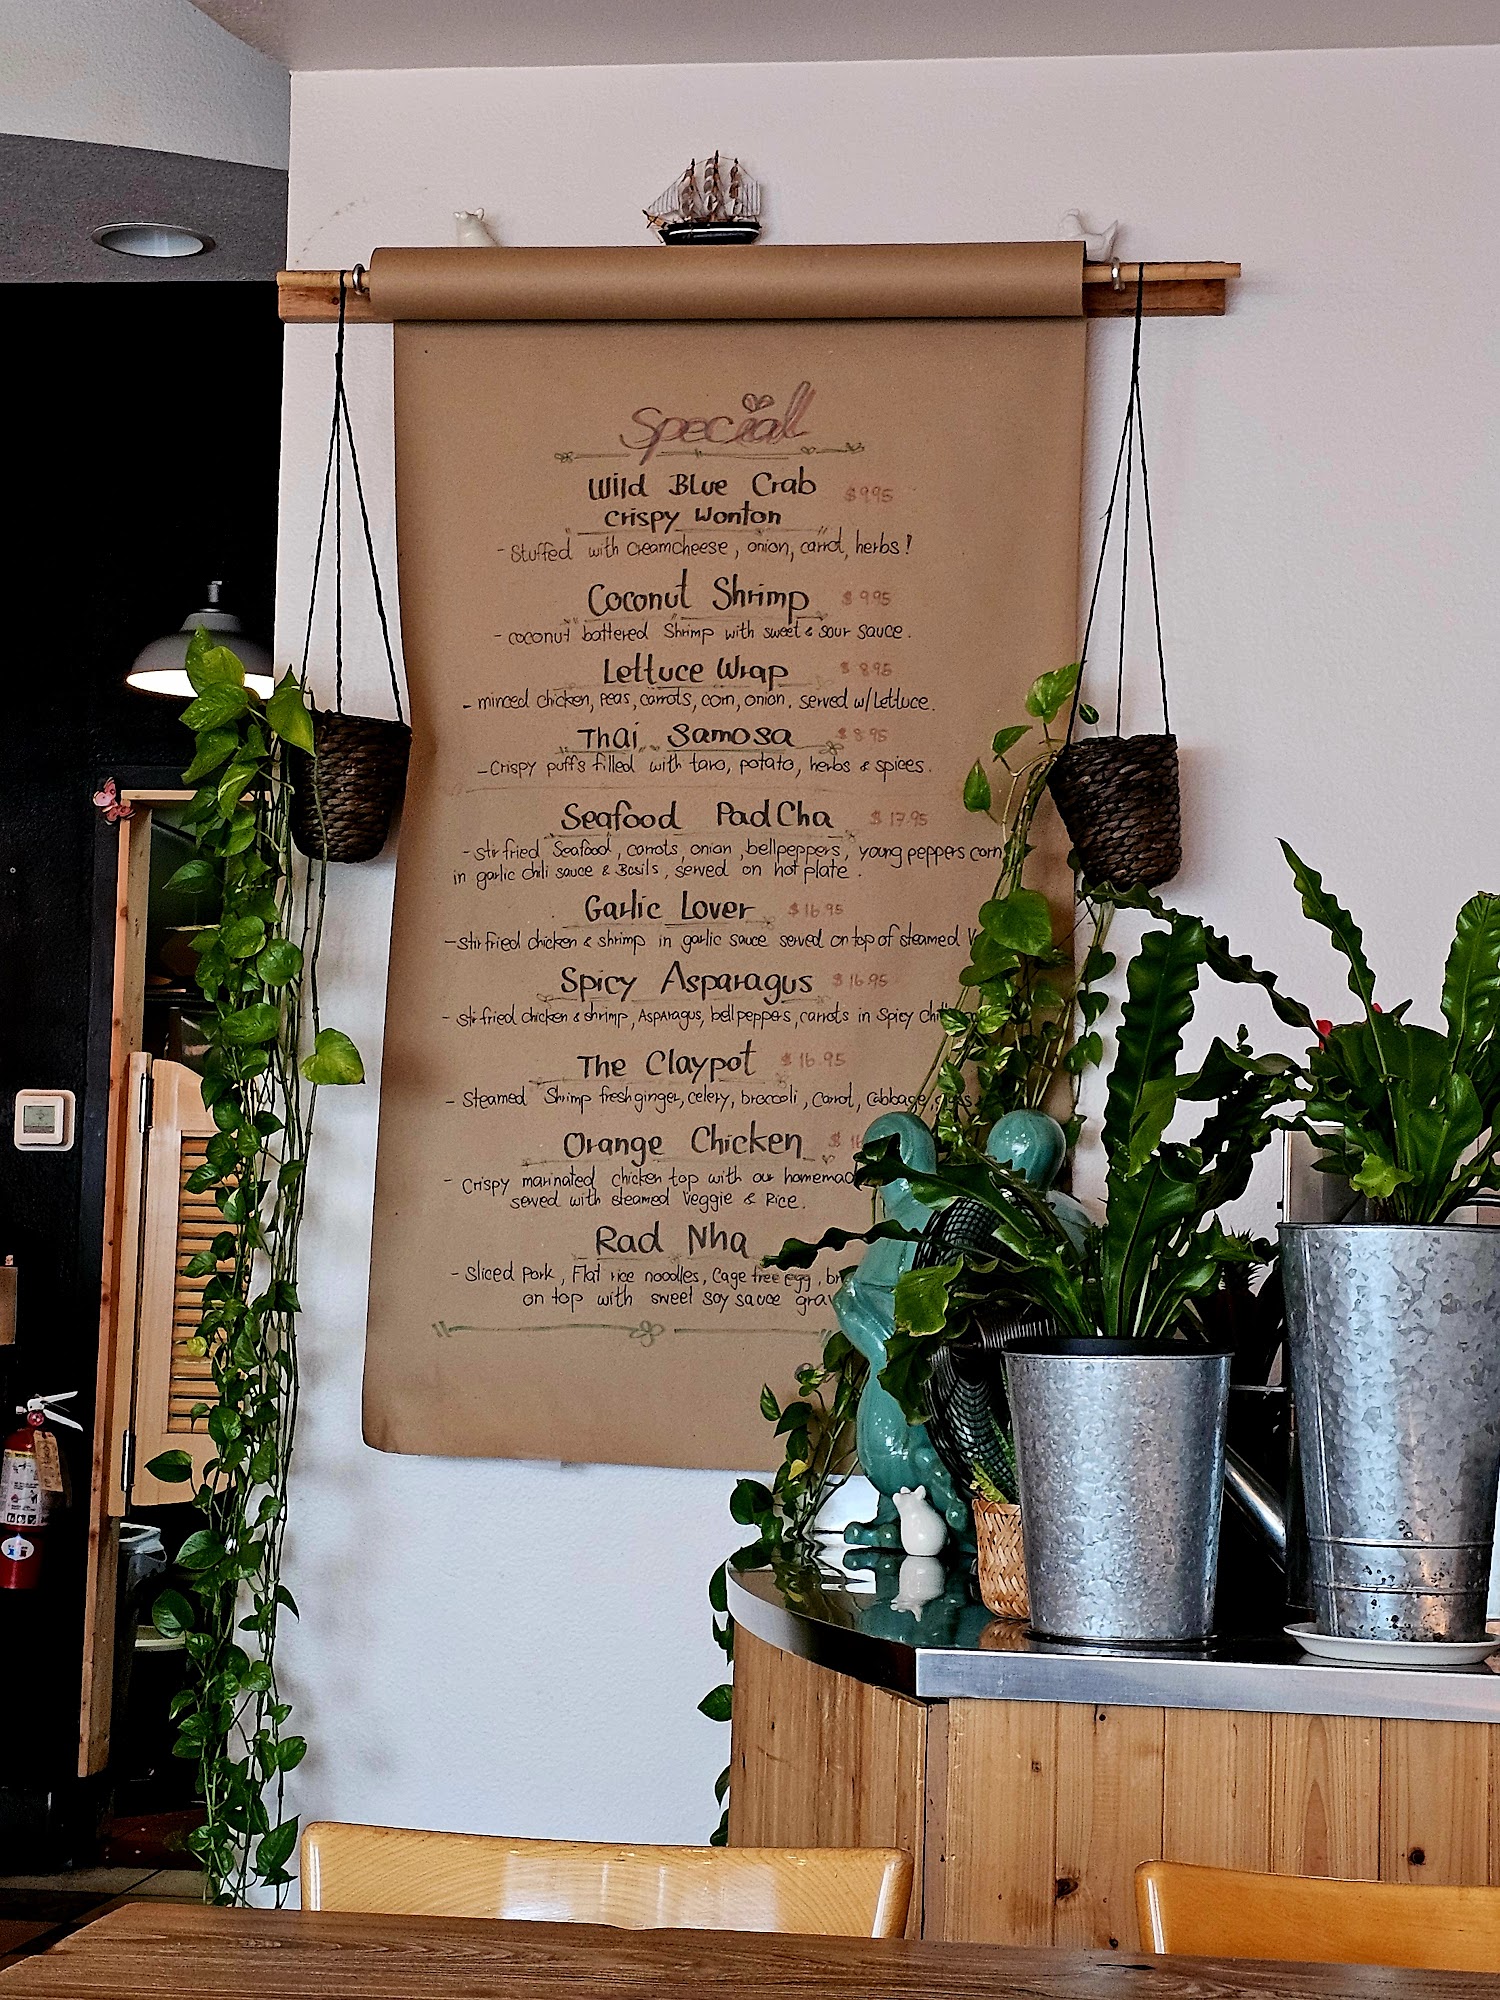 Special
Wild Blue Crab $9.95
Crispy Wonton
- Stuffed with creamcheese, onion, carrot, herbs!
Coconut Shrimp $9.95
- coconut battered Shrimp with sweet & sour sauce.
Lettuce Wrap $8.95
- minced chicken, peas, carrots, corn, onion. served w/Lettuce.
Thai Samosa $8.95
- Crispy puffs filled with taro, potato, herbs & spices.
Seafood Pad Cha $17.95
- stir fried Seafood, carrots, onion, bellpeppers, young peppers corn
in garlic chili sauce & Basils, served on hot plate.
Garlic Lover $16.95
- stir fried chicken & shrimp in garlic sauce served on top of steamed
Spicy Asparagus $16.95
- stir fried chicken & shrimp, Asparagus, bell peppers, carrots in Spicy
The Claypot $16.95
- Steamed Shrimp fresh ginger, celery, broccoli, carrot, cabbage,
Orange Chicken $
- Crispy marinated chicken top with our
served with steamed Veggie & Rice.
Rad Nha
- Sliced Pork, Flat rice noodles, Cage free egg,
on top with sweet soy sauce